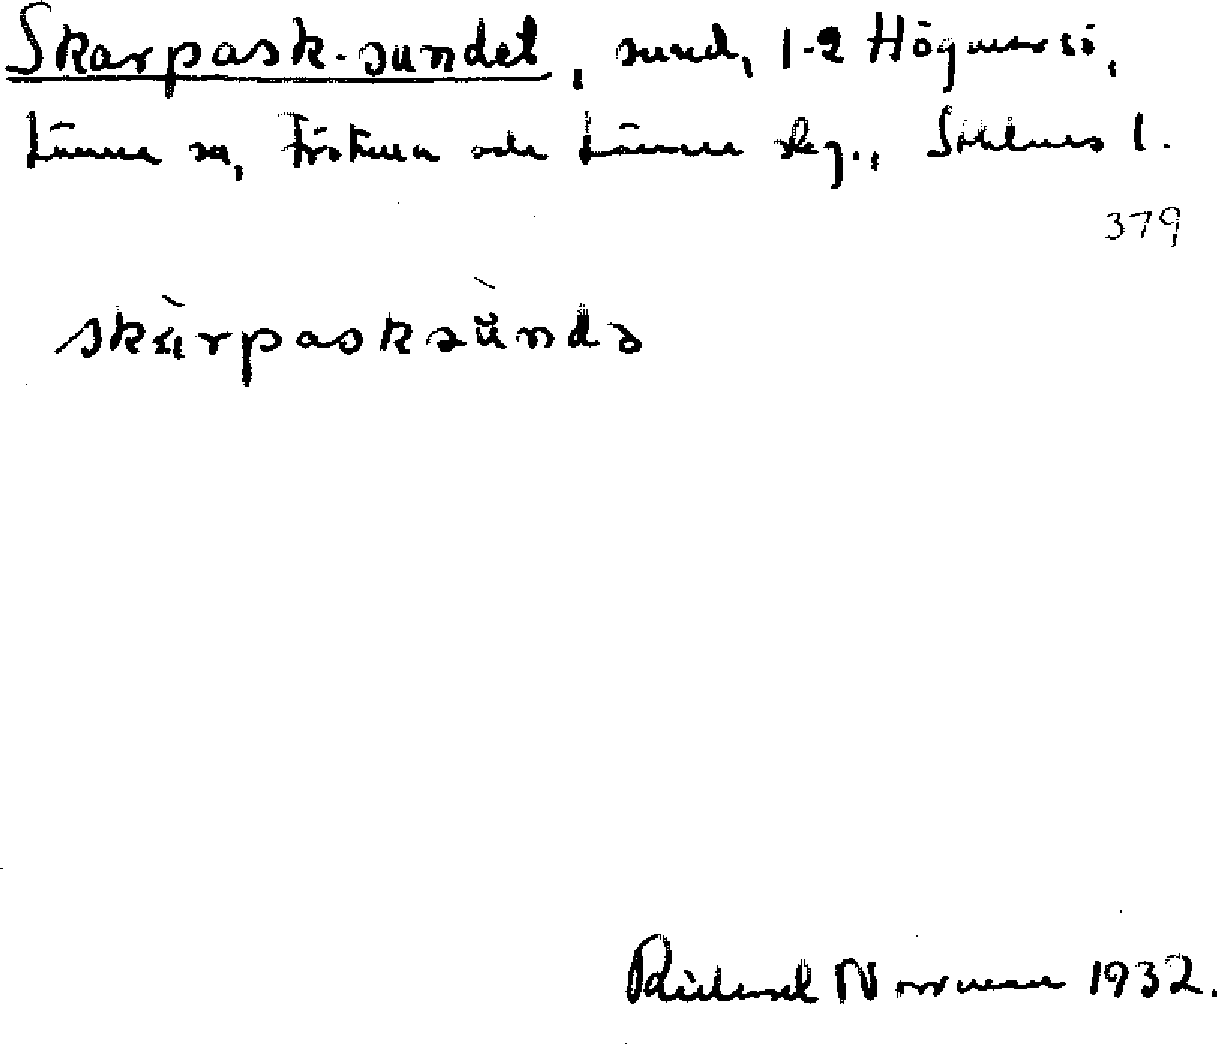 Skarpask-sundet, sund, 1-2 Högmarsö,
Länna sn, Frötuna och Länna skg., Sthlms l.
379
skàrpasksùndə
Richard Norrman 1932.